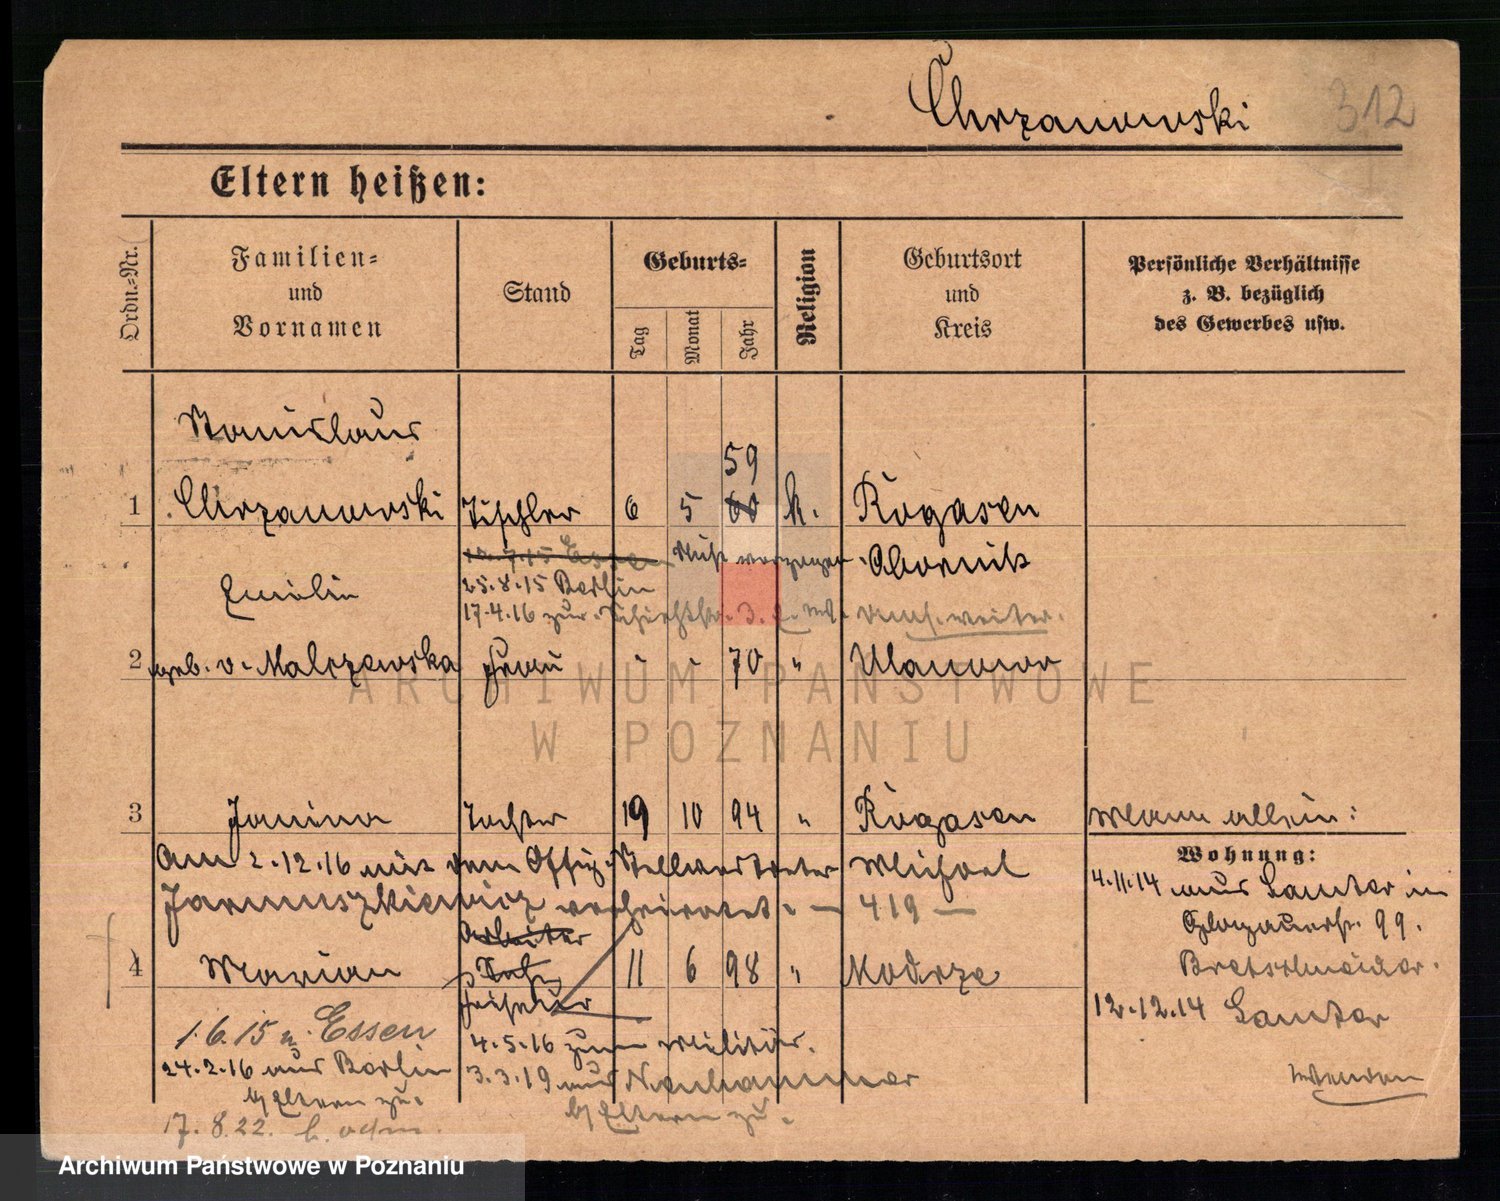 Chrzanowski
312
Eltern heißen:
Ordn.-Nr.
Familien-
und
Vornamen
Stand
Geburts-
Tag
Monat
Jahr
Religion
Geburtsort
und
Kreis
Persönliche Verhältnisse
z. B. bezüglich
des Gewerbes usw.
Stanislaus
59
1 Chrzanowski Tischler 6 5 60 k. Rogasen
Obornik
Emilie
25.8.15 Berlin
17.4.16 zur weiter.
2 geb. v. Malczewska Frau - - 70 " Ulanowo
ARCHIWUM PAŃSTWOWE
W POZNANIU
3 Janina Tochter 19 10 94 " Rogasen Mann allein:
Am 2.12.16 mit dem Offiz. Stellvertreter Michael
Januszkiewicz verheiratet. - 419 -
Wohnung:
4.11.14 aus Samter in
Glogauerstr. 99.
Bretschneider.
12.12.14 Samter
Arbeiter
4 Marian 11 6 98 " Modrze
Friseur
1.6.15 n. Essen
4.5.16 zum Militär.
24.2.16 aus Berlin
b/ Eltern zu.
3.3.19 aus Neuhammer
b/ Eltern zu.
17.8.22.
Wenden
Archiwum Państwowe w Poznaniu